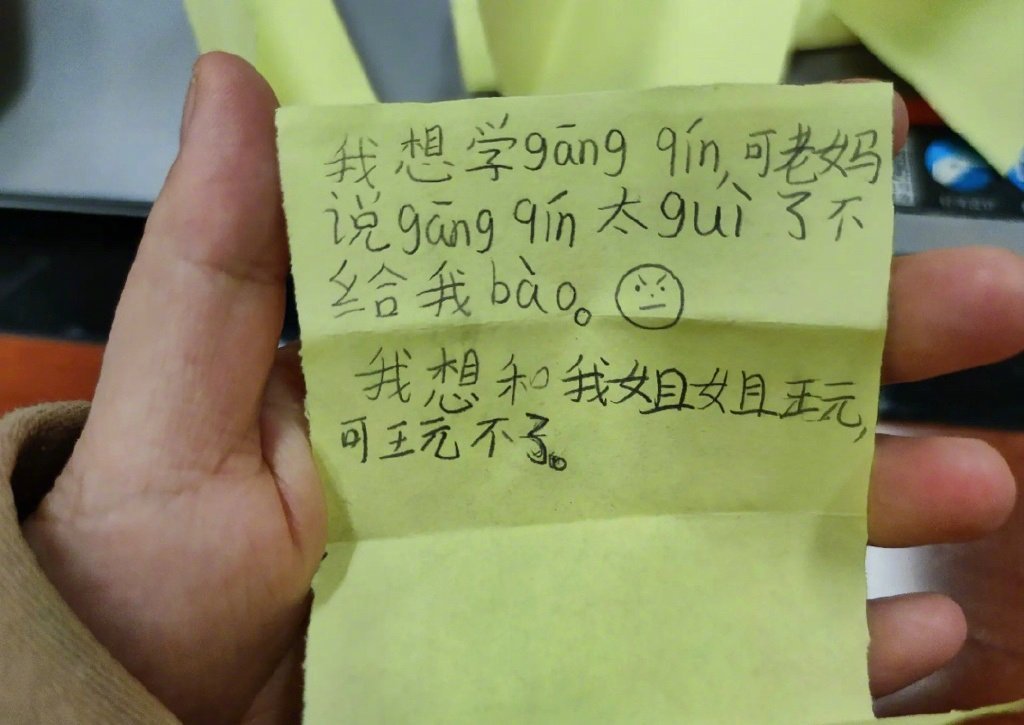 我想学gāng qín,可老妈
说gāng qín太guì了不
给我bào。
我想和我姐姐玩,
可玩不了。